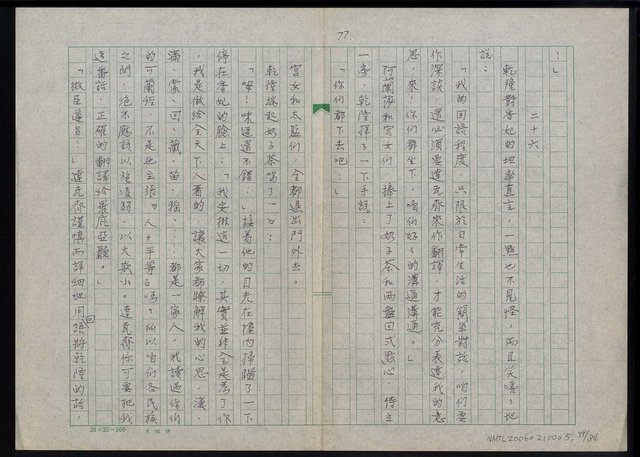 77
！」
二十六、
乾隆對香妃的坦率直言，一點也不見怪，而且笑嘻嘻地
說：
「我的回語程度，只限於日常生活的簡單對話，咱們要
作深談，還必須要達克齊來作翻譯，才能充分表達我的意
思，來，你們都坐下，咱們好好的溝通溝通。」
阿蘭莎和宮女們，捧上了奶子茶和兩盤回式點心，侍立
一旁，乾隆揮了一下手說：
「你們都下去吧！」
宮女和太監們，全都退出門外去。
乾隆端起奶子茶喝了一口：
「嗯！味道還不錯。」接着他的目光在樓內掃瞄了一下
停在香妃的臉上：「我要做這一切，其實並非全是為了你
，我是做給全天下人看的，讓大家都瞭解我的心思，漢、
滿、蒙、回、藏、苗、猺……都是一家人，我讀過你們
的可蘭經，不是也主張『人人平等』嗎。所以咱們各民族
之間，絕不應該以強凌弱，以大欺小。達克齊你可要把我
這番話，正確的翻譯給羅庇亞聽。」
「微臣遵旨！」達克齊謹慎而詳細地用回語將乾隆的話，
20×25=500
NMTL20060210005, 79/84